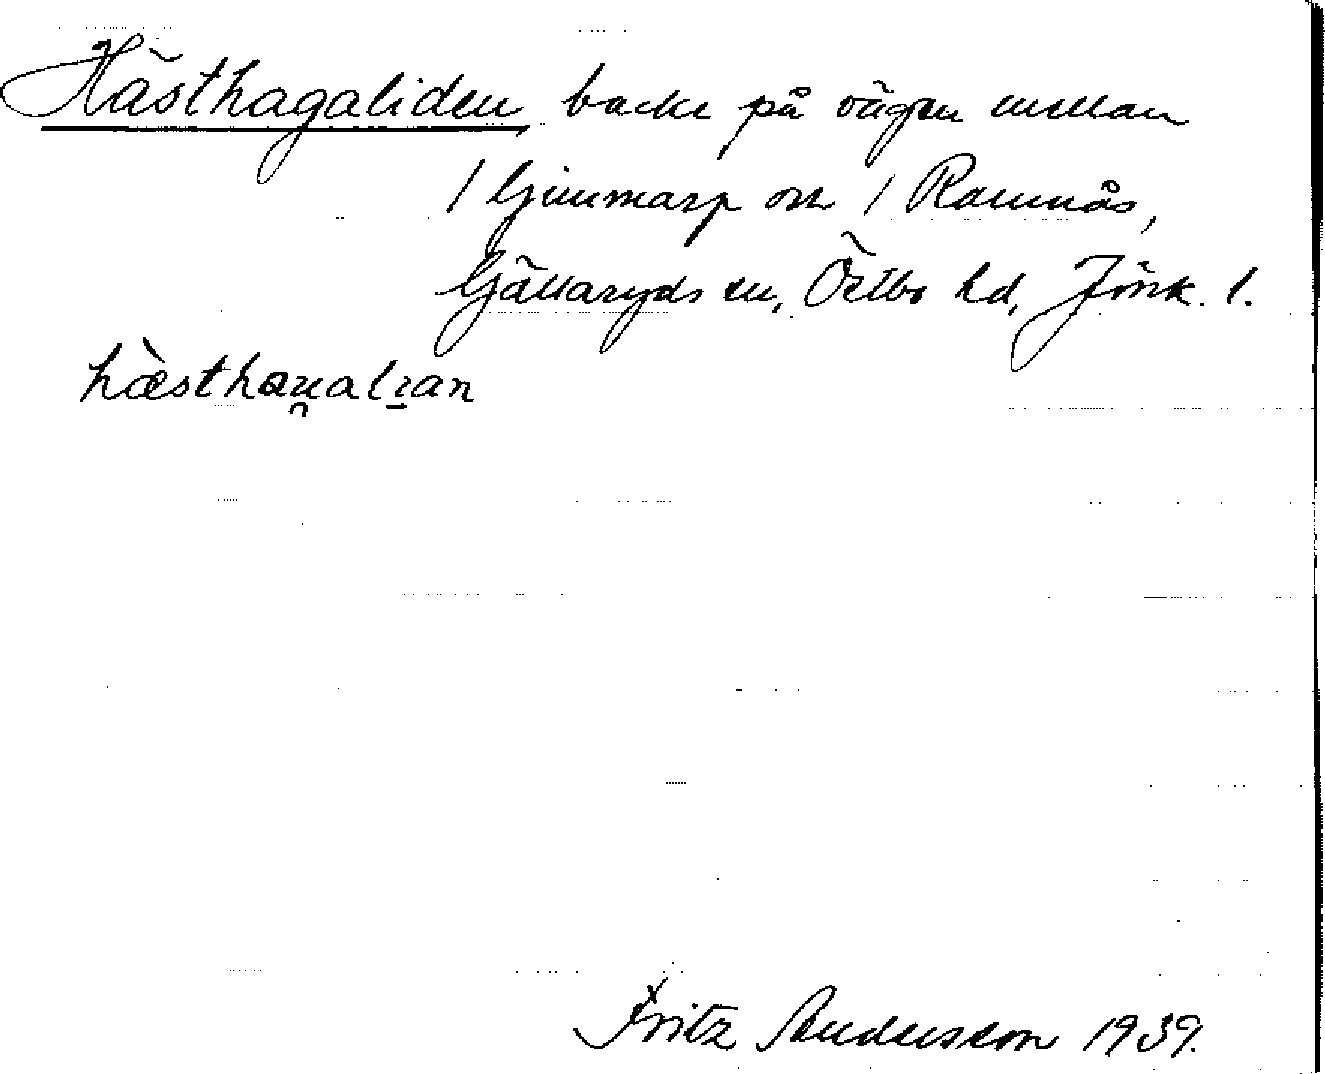 Hästhagaliden, backe på vägen mellan
/ Gimmarp och / Ramnås,
Gällaryds sn, Östbo hd, Jönk. l.
hæ̀sthau̯alɪan
Fritz Andersson 1939.